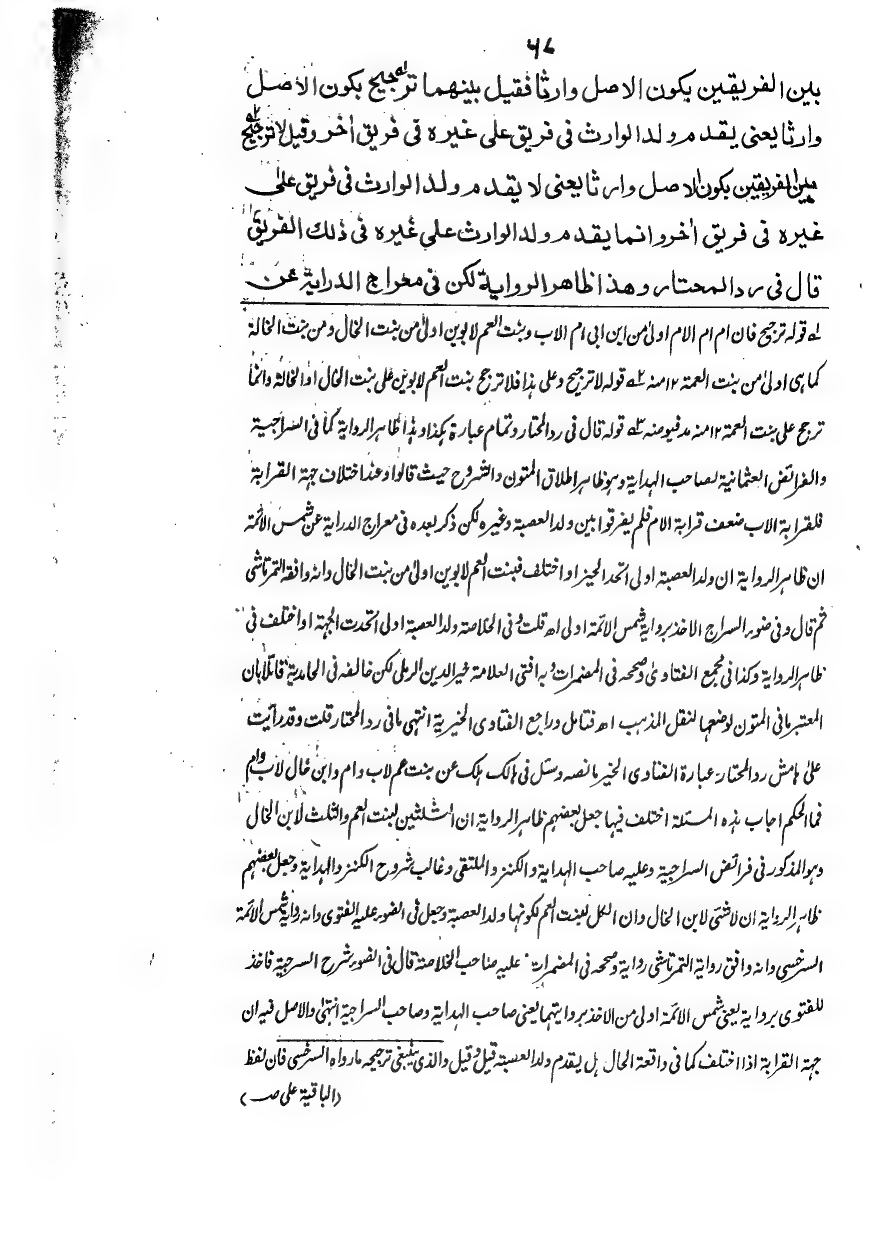 ۶۷
بين الفريقين بكون الاصل وارثا فقيل بينهما ترجيح له بكون الاصل
وارثا يعنى يقدم ولد الوارث فى فريق على غيره فى فريق أخر وقيل لا ترجيح ۲ه
بين الفريقين بكون الاصل وارثا يعنى لا يقدم ولد الوارث فى فريق على
غيره فى فريق أخر وانما يقدم ولد الوارث على غيره فى ذلك الفريق
قال فى رد المحتار وهذا ظاهر الرواية لكن فى معراج الدراية عن
له قوله ترجيح فان ام ام الام اولى من ابن ابى ام الاب وبنت العم لابوين اولى من بنت الخال ومن بنت الخالة
كما هى اولى من بنت العمة ۱۲ منه ۲ه قوله لا ترجيح وعلى هذا فلا ترجح بنت العم لابوين على بنت الخال او الخالة وانما
ترجح على بنت العمة ۱۲ منه مد فيوضه ۳ه قوله قال فى رد المحتار وتمام عبارة هكذا وهذا ظاهر الرواية كما فى السراجية
والفرائض العثمانية لصاحب الهداية وهو ظاهر اطلاق المتون والشروح حيث قالوا وعند اختلاف جهة القرابة
فلقرابة الاب ضعف قرابة الام فلم يفرقوا بين ولد العصبة وغيره لكن ذكر بعده فى معراج الدراية عن شمس الائمة
ان ظاهر الرواية ان ولد العصبة اولى اتحد الحيز او اختلف فبنت العم لابوين اولى من بنت الخال وانه وافقه التمرتاشى
ثم قال وفى ضوء السراج الاخذ برواية شمس الائمة اولى اھ قلت وفى الخلاصة ولد العصبة اولى اتحدت الجهة او اختلف فى
ظاهر الرواية وكذا فى مجمع الفتاوى وصححه فى المضمرات وبه افتى العلامة خير الدين الرملى لكن خالفه فى الحامدية قائلا بان
المعتبر ما فى المتون لوضعها لنقل المذهب اھ فتامل وراجع الفتاوى الخيرية انتهى ما فى رد المحتار قلت وقد رأيت
على هامش رد المحتار عبارة الفتاوى الخيرية ما نصه وسئل فى هالك هلك عن بنت عم لاب وام وابن خال لاب وام
فما الحكم اجاب هذه المسئلة اختلف فيها جعل بعضهم ظاهر الرواية ان الثلثين لبنت العم والثلث لابن الخال
وهو المذكور فى فرائض السراجية وعليه صاحب الهداية والكنز والملتقى وغالب شروح الكنز والهداية وجعل بعضهم
ظاهر الرواية ان لا شئى لابن الخال وان الكل لبنت العم لكونها ولد العصبة وجعل فى الضوء عليه الفتوى وانه رواية شمس الائمة
السرخسى وانه وافق رواية التمرتاشى رواية وصححه فى المضمرات عليه صاحب الخلاصة قال فى الضوء شرح السرجية فاخذ
للفتوى برواية يعنى شمس الائمة اولى من الاخذ بروايتهما يعنى صاحب الهداية وصاحب السراجية انتهى والاصل فيه ان
جهة القرابة اذا اختلف كما فى واقعة الحال هل يقدم ولد العصبة قيل وقيل والذى ينبغى ترجيحه ما رواه السرخسى فان لفظ
(الباقية على صـ)